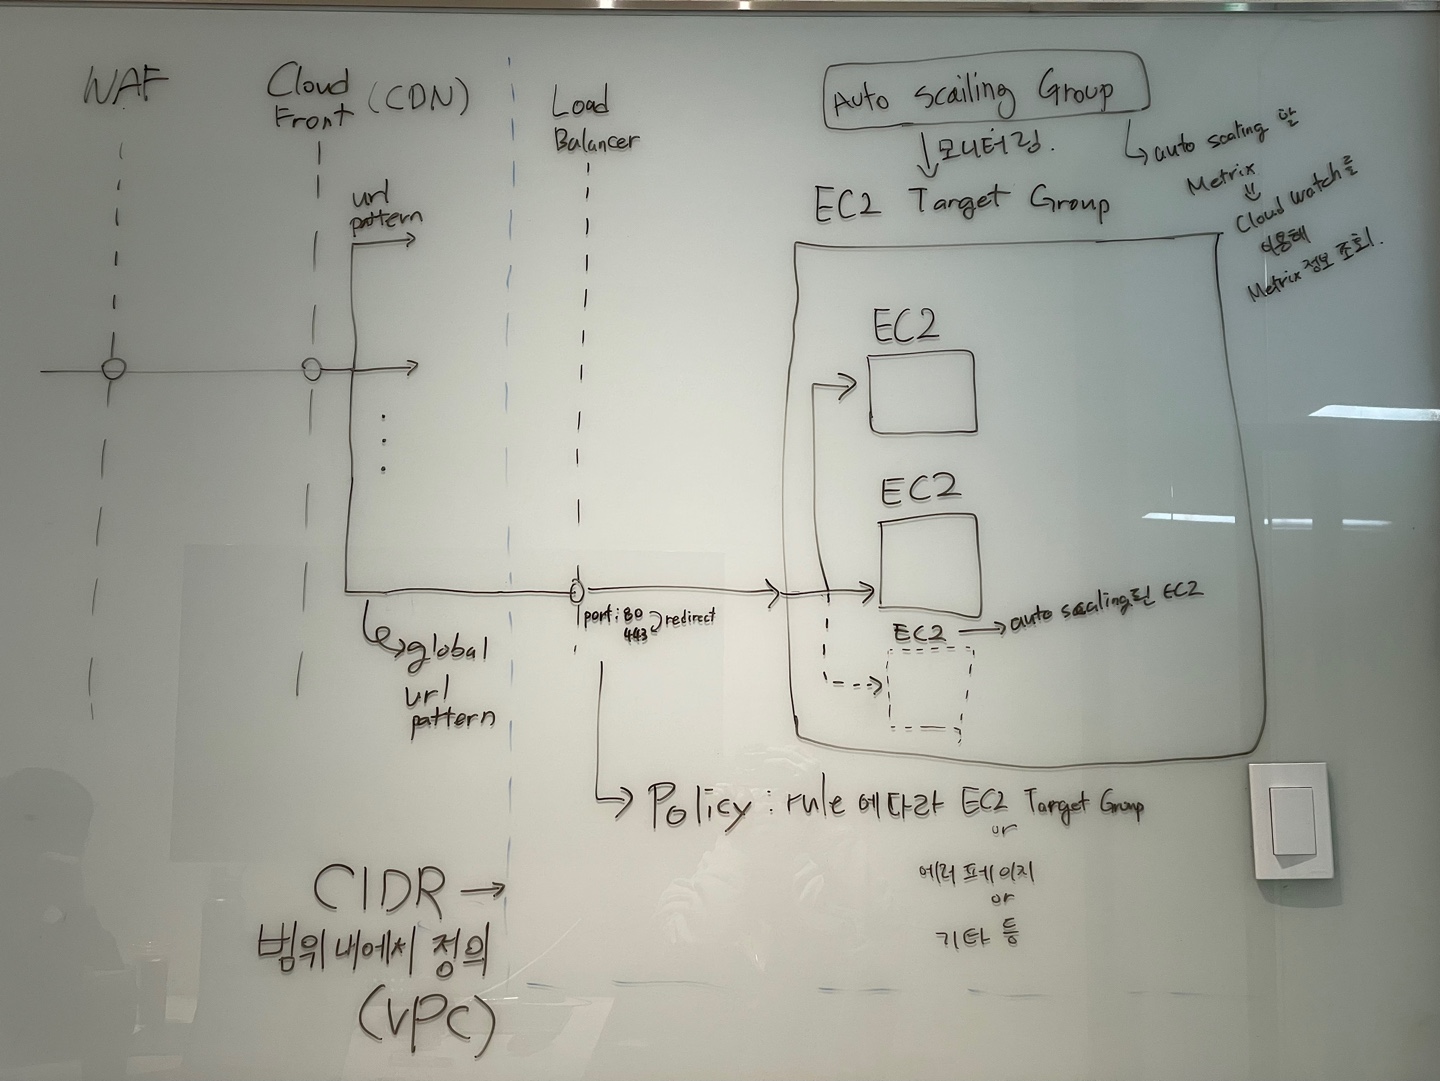 WAF
Cloud
Front (CDN)
Load
Balancer
Auto Scailing Group
모니터링.
auto scaling 할
Metrix
Cloud watch를
이용해
Metrix 정보 조회.
EC2 Target Group
url
pattern
EC2
EC2
port:80
443
redirect
EC2
auto scaling된 EC2
global
url
pattern
Policy : rule에 따라 EC2 Target Group
or
에러 페이지
or
기타 등
CIDR
범위 내에서 정의
(VPC)